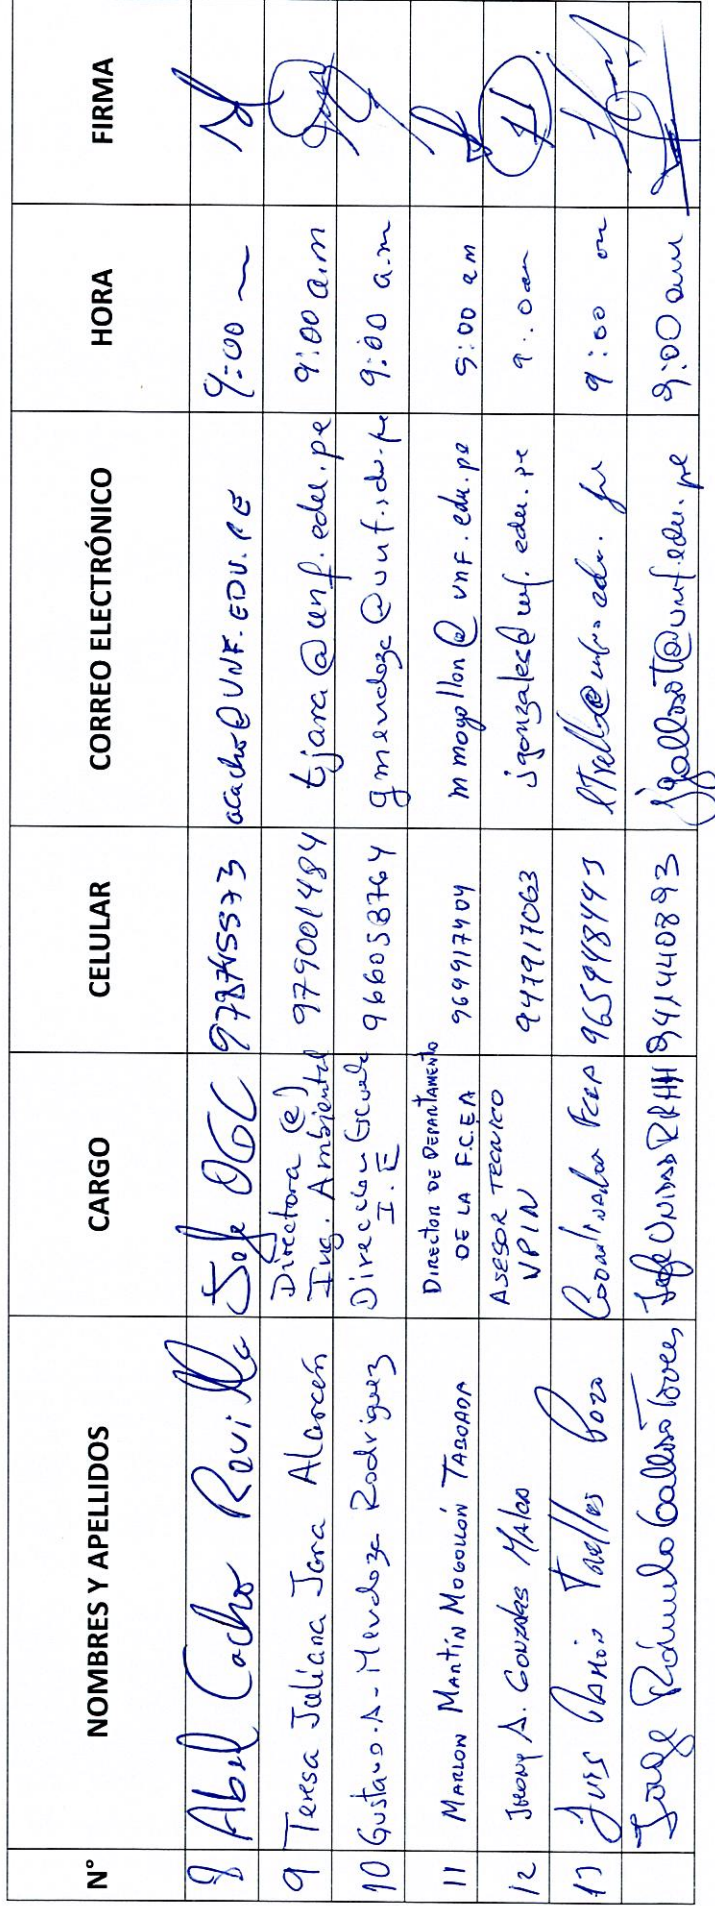 N° NOMBRES Y APELLIDOS CARGO CELULAR CORREO ELECTRÓNICO HORA FIRMA
8 Abel Cacho Revilla Jefe OGC acacho@UNF.EDU.PE 9:00
9 Teresa Juliana Jara Alarcón Directora (e) Ing. Ambiental 979001484 tjara@unf.edu.pe 9:00 a.m
10 Gustavo A. Mendoza Rodriguez I.E 966058764 gmendoza@unf.edu.pe 9:00 a.m
11 MARLON MARTÍN MOGOLLÓN TABOADA DIRECTOR DE DEPARTAMENTO DE LA F.C.E.A 969917404 mmogollon@unf.edu.pe 9:00 am
12 A. GONZALES ASESOR TECNICO VPIN 947917063 jgonzales@unf.edu.pe
13 Luis Ramón Trelles Pozo Coordinador 9:00
Jorge Rómulo Jefe UNIDAD RRHH 941440893 9:00 am